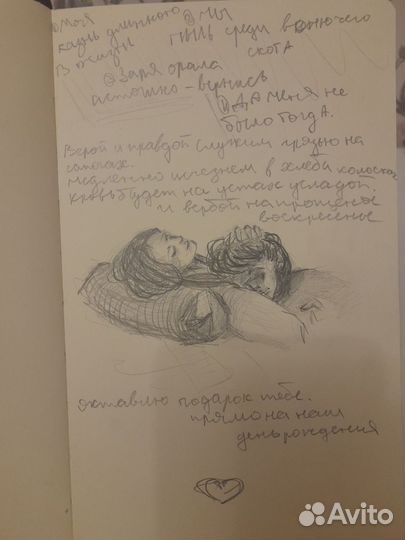 Моя
казнь длинною
в жизнь
Мы
гниль среди вонючего
скота
Заря орала
истошно - вернись
Да меня не
было тогда.
Верой и правдой служим грязью на
сапогах.
медленно исчезнем в колосках
кровь будет на устах усладой.
и вербой на прощеное
воскресенье
оставлю подарок тебе.
прямо на наш
день рождения
Avito